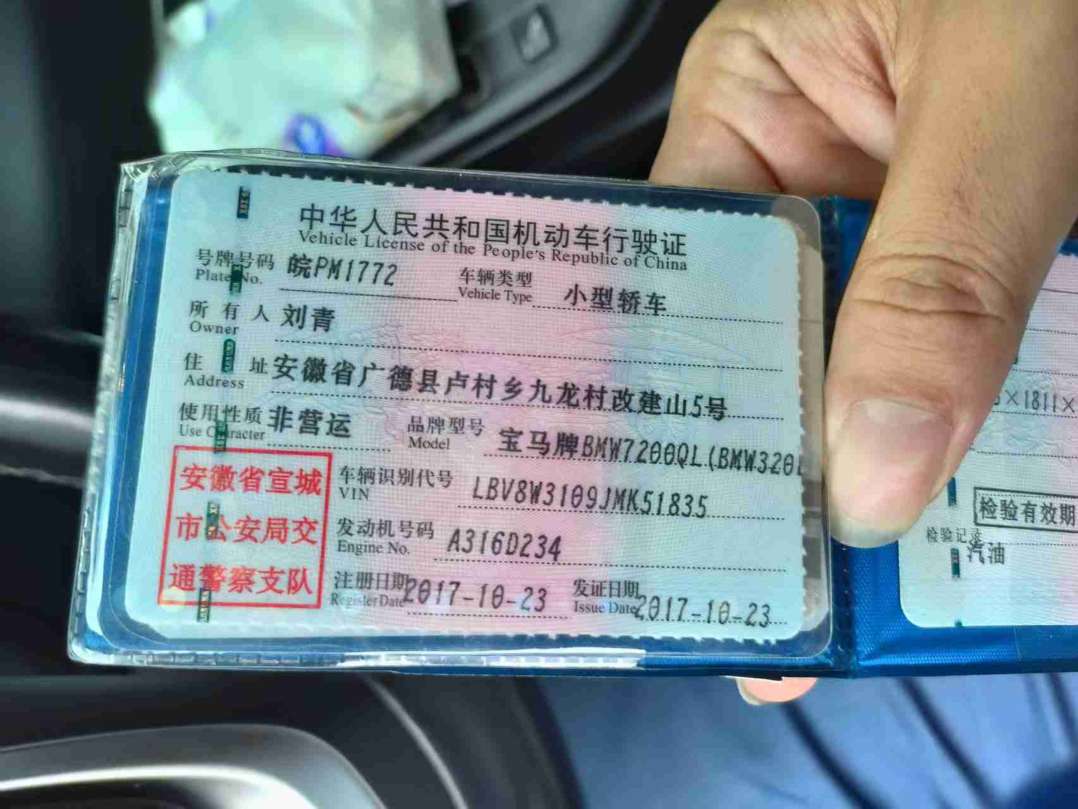 中华人民共和国机动车行驶证
Vehicle License of the People's Republic of China
号牌号码 皖PM1772 车辆类型 小型轿车
Plate No. Vehicle Type
所有人 刘青
Owner
住址 安徽省广德县卢村乡九龙村改建山5号
Address
使用性质 非营运 品牌型号 宝马牌BMW7200QL(BMW320L
Use Character Model
安徽省宣城
市公安局交
通警察支队
车辆识别代号 LBV8W3109JMK51835
VIN
发动机号码 A316D234
Engine No.
注册日期 2017-10-23 发证日期 2017-10-23
Register Date Issue Date
×1811×
检验有效期
检验记录
汽油